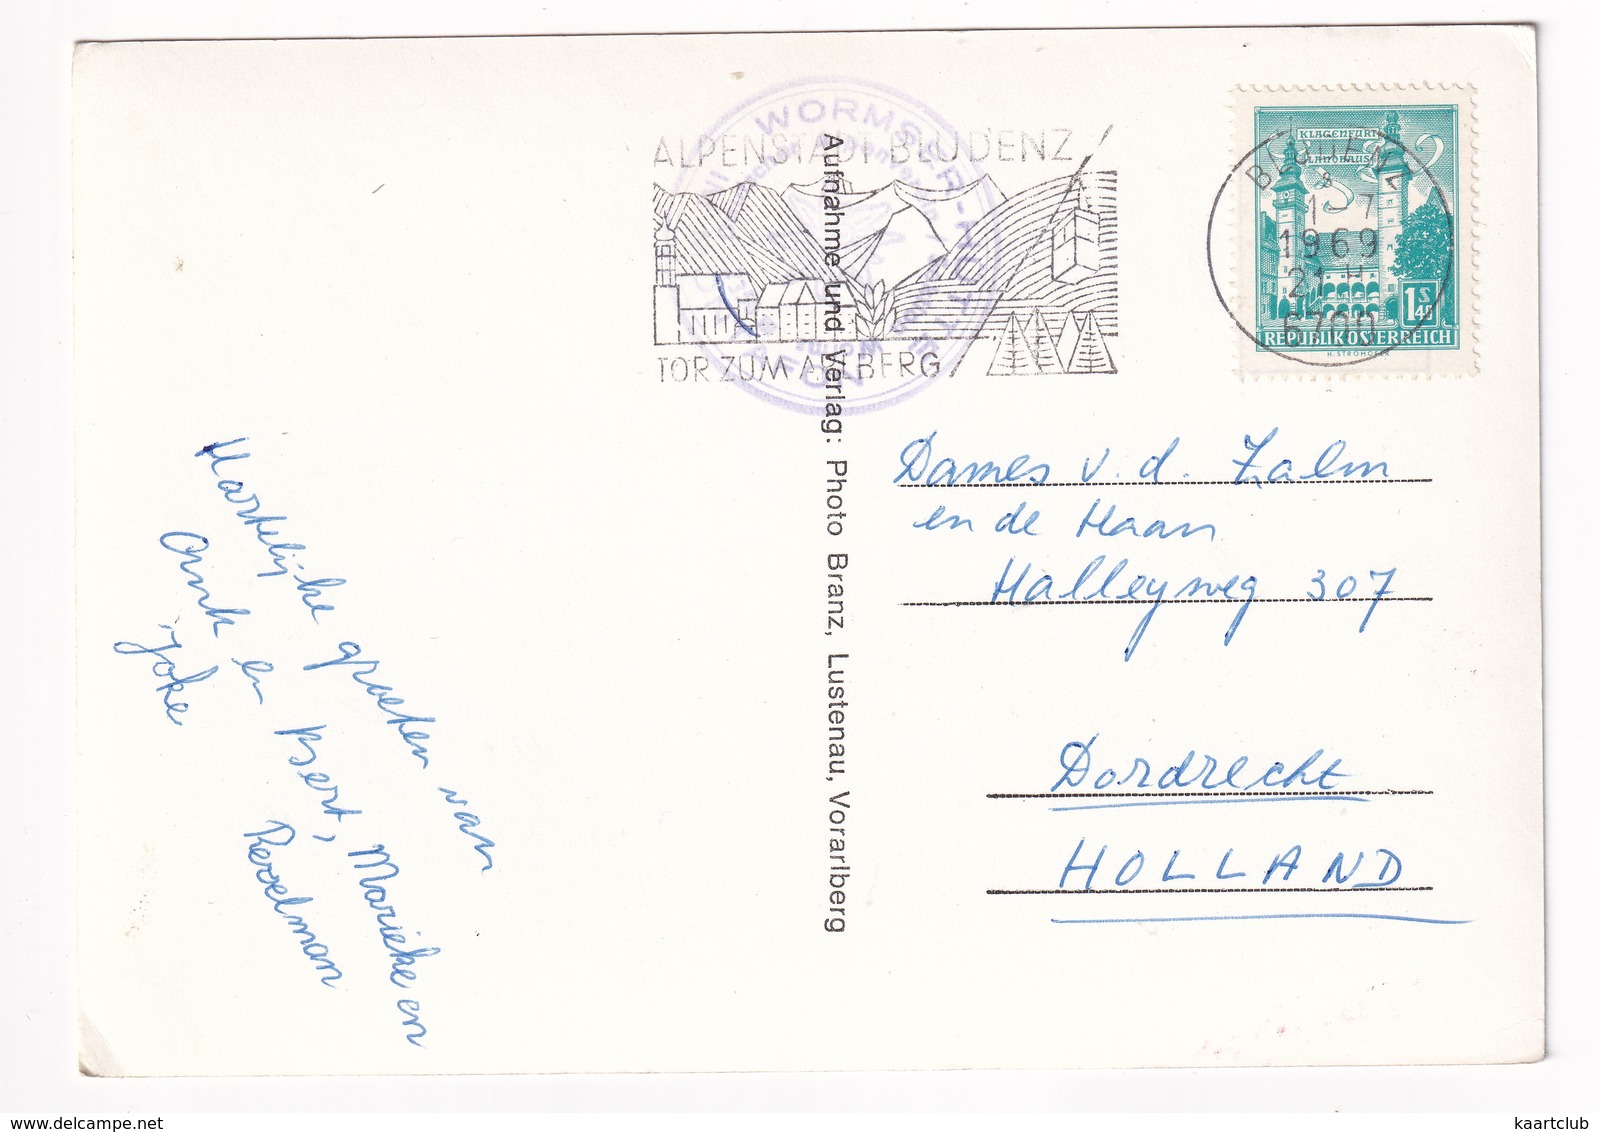 WORMSER-HÜTTE
ALPENSTADT BLUDENZ
TOR ZUM ARLBERG
KLAGENFURT
LANDHAUS
BLUDENZ
1-7
1969
21H
6700
1 S 40
REPUBLIK ÖSTERREICH
H. STROHOFER
Aufnahme und Verlag: Photo Branz, Lustenau, Vorarlberg
Hartelijke groeten van
en Bert, Marieke en
Joke Resselman
Dames v.d. Zalm
en de Haan
Halleyweg 307
Dordrecht
HOLLAND
kaartclub